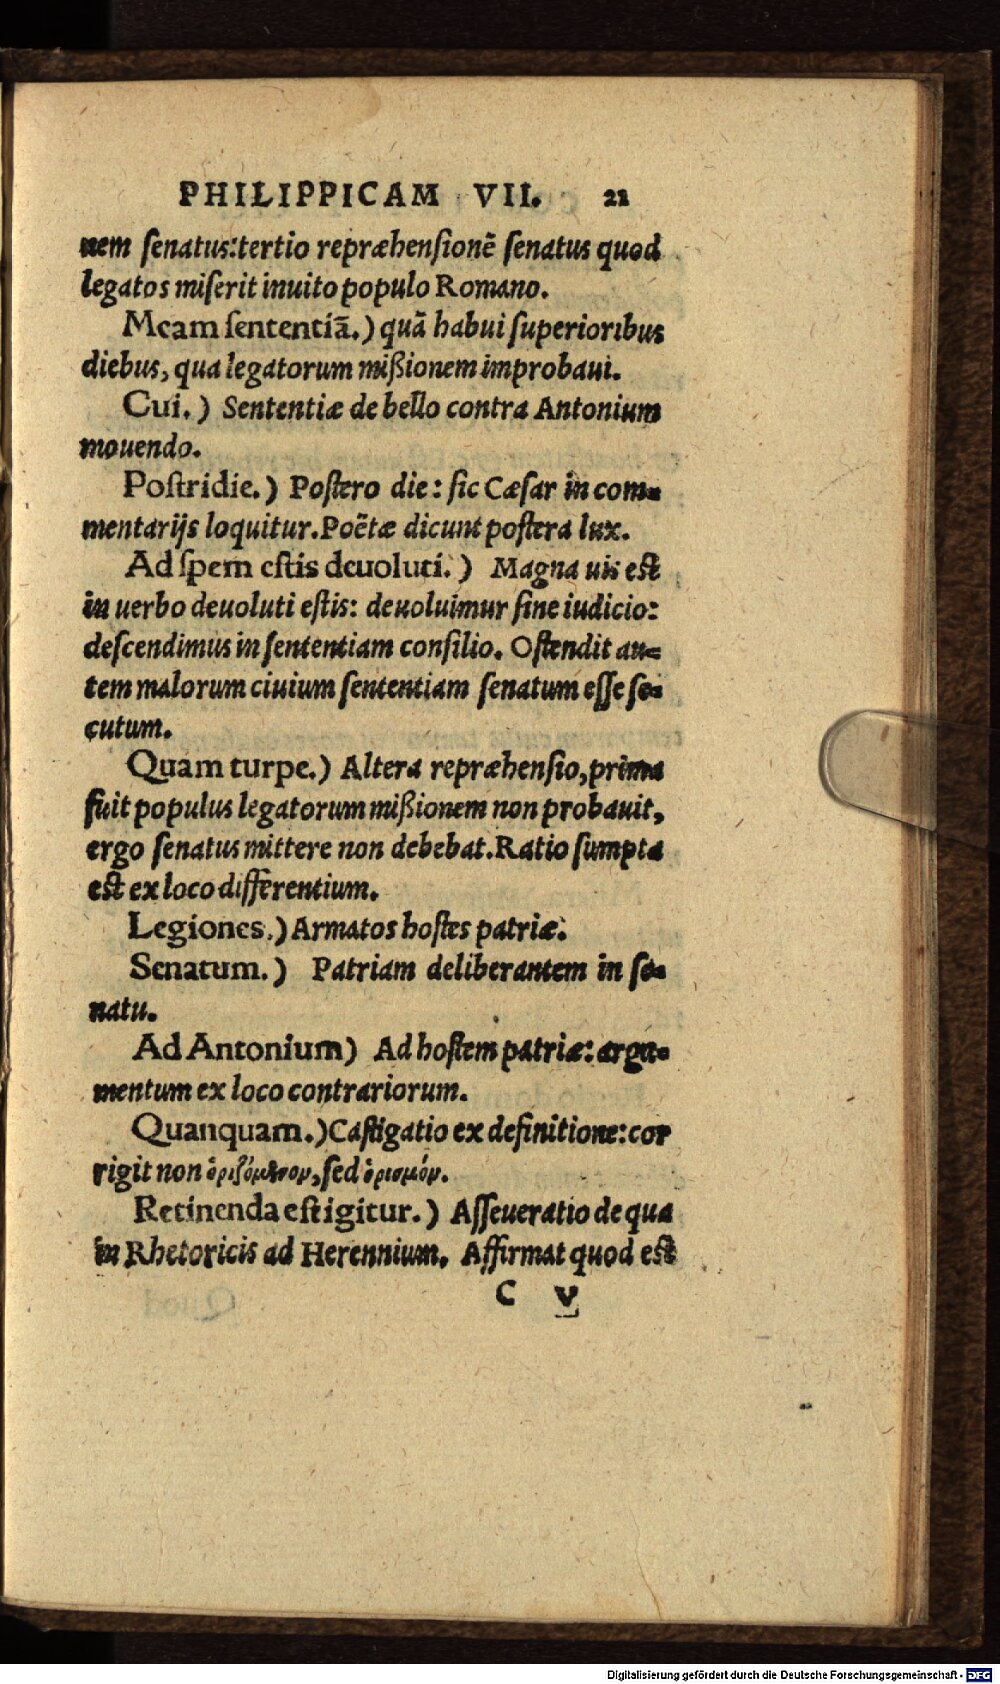 PHILIPPICAM VII. 21
nem ſenatus: tertio repræhenſionẽ ſenatus quod
legatos miſerit inuito populo Romano.
Meam ſententiã.) quã habui ſuperioribus
diebus, qua legatorum mißionem improbaui.
Cui.) Sententiæ de bello contra Antonium
mouendo.
Poſtridie.) Poſtero die: ſic Cæſar in com-
mentarijs loquitur. Poëtæ dicunt poſtera lux.
Ad ſpem eſtis deuoluti.) Magna uis eſt
in uerbo deuoluti eſtis: deuoluimur ſine iudicio:
deſcendimus in ſententiam conſilio. Oſtendit au-
tem malorum ciuium ſententiam ſenatum eſſe ſe-
cutum.
Quam turpe.) Altera repræhenſio, prima
fuit populus legatorum mißionem non probauit,
ergo ſenatus mittere non debebat. Ratio ſumpta
eſt ex loco differentium.
Legiones.) Armatos hoſtes patriæ.
Senatum.) Patriam deliberantem in ſe-
natu.
Ad Antonium) Ad hoſtem patriæ: argu-
mentum ex loco contrariorum.
Quanquam.) Caſtigatio ex definitione: cor
rigit non ὁριζόμενον, ſed ὁρισμόν.
Retinenda eſt igitur.) Aſſeueratio de qua
in Rhetoricis ad Herennium. Affirmat quod eſt
C v
Digitalisierung gefördert durch die Deutsche Forschungsgemeinschaft - DFG